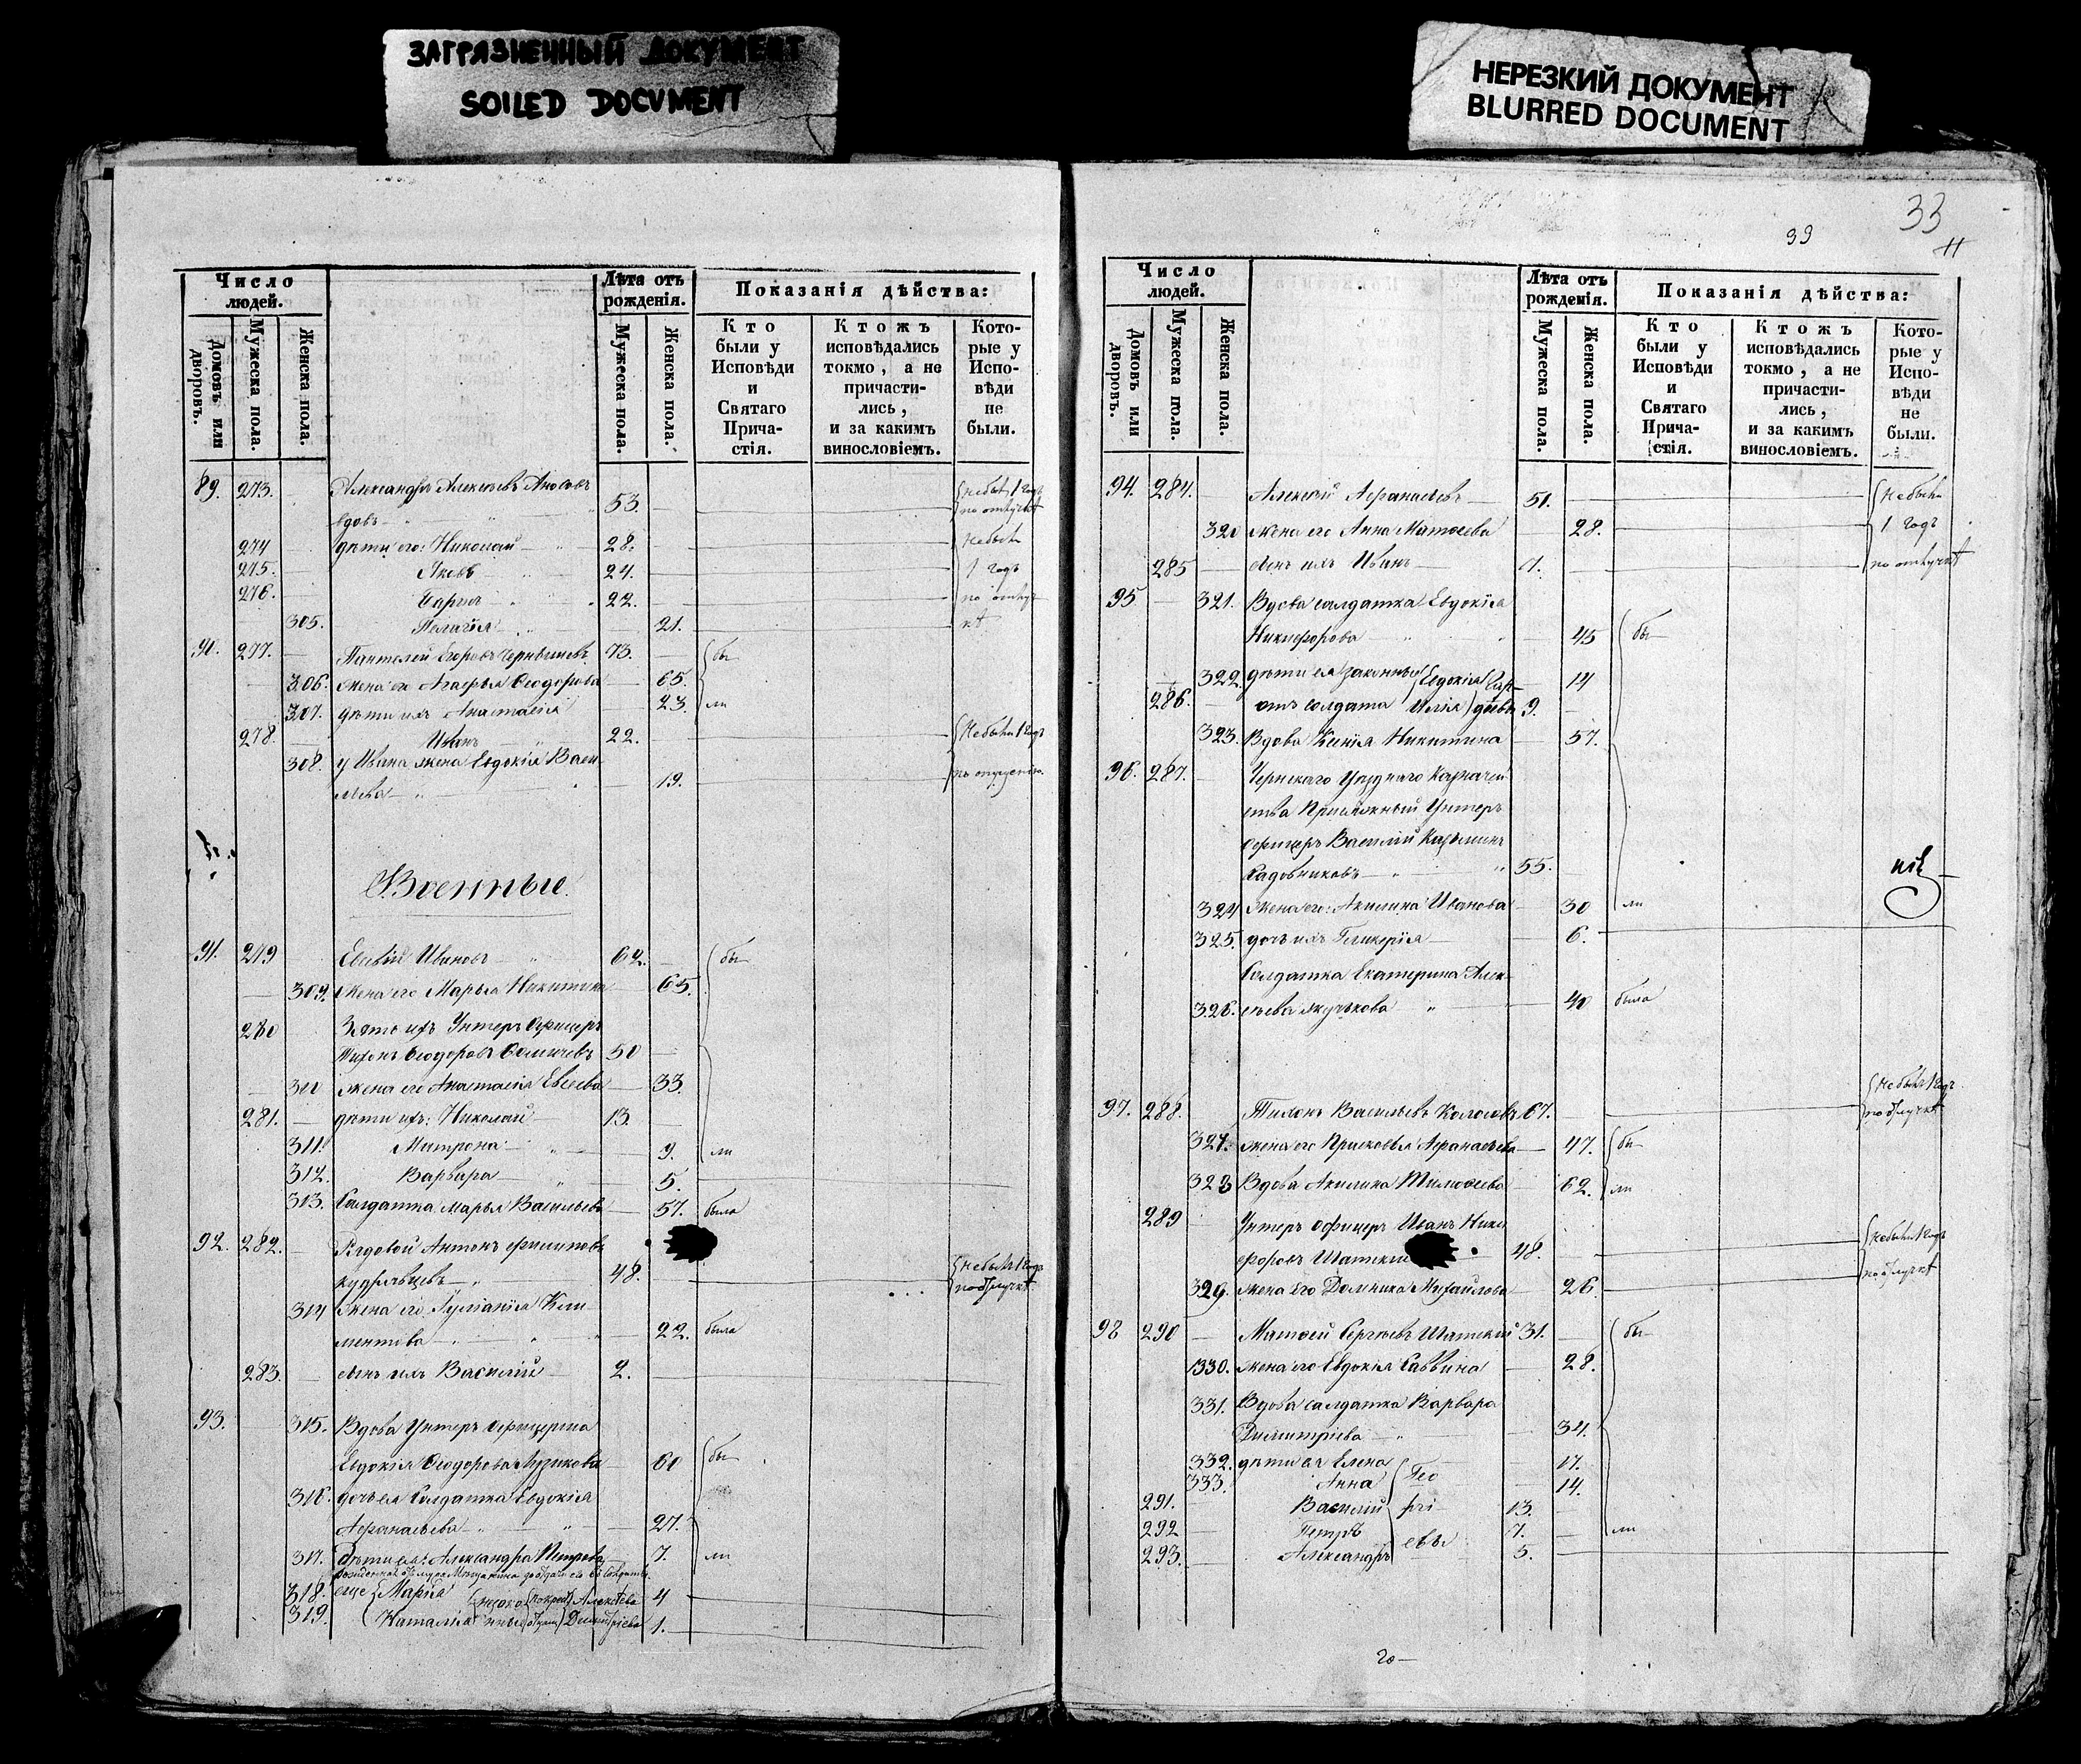 ЗАГРЯЗНЕННЫЙ ДОКУМЕНТ
SOILED DOCUMENT
НЕРЕЗКИЙ ДОКУМЕНТ
BLURRED DOCUMENT
Число людей.
Лѣта отъ рожденія.
Показанія дѣйства:
Домовъ или дворовъ.
Мужеска пола.
Женска пола.
Мужеска пола.
Женска пола.
Кто были у Исповѣди и Святаго Прича-стія.
Ктожъ исповѣдались токмо, а не причасти-лись, и за какимъ винословіемъ.
Кото-рые у Испо-вѣди не были.
89. 273. Александръ Алексѣевъ {небылъ 1 годъ
вдовъ 53. по отлучкѣ
274 дѣти его: Николай 28. небыли
275. Яковъ 24. 1 годъ
276. 22. по отлуч
305. Пелагія 21. кѣ
90. 277. Пантелей Егоровъ Чернышевъ 73. бы
306. жена его Агафья Ѳеодорова 65.
307. дѣти ихъ Анастасія 23. ли
278. Иванъ 22. {небыли 1 годъ
308. у Ивана жена Евдокія Васи-
льева 19.
Военные
91. 279 Евсѣй Ивановъ 62. бы
309. жена его Марья Никитина 65.
280 Зять ихъ Унтеръ Офицеръ
Тихонъ Ѳеодоровъ 50
310 жена его Анастасія Евсеева 33.
281. дѣти ихъ: Николай 13.
311. Матрона 9. ли
312. Варвара 5.
313. Солдатка Марья Васильева 57. была
92. 282. Рядовой Антонъ Филиповъ
Кудрявцевъ 48. {небылъ 1 годъ по отлучкѣ
314 жена его Іуліанія Кли-
ментова 22. была
283. сынъ ихъ Василій 2.
93. 315. Вдова Унтеръ Офицерша
Евдокія Ѳеодорова 60 бы
316. дочь ея Солдатка Евдокія
Афанасьева 27.
317. Дѣти ея: Александра Петрова 7. ли
318. еще Марія Алексѣева 4
319. Наталія Димитріева 1.
33
39
11
Число людей.
Лѣта отъ рожденія.
Показанія дѣйства:
Домовъ или дворовъ.
Мужеска пола.
Женска пола.
Мужеска пола.
Женска пола.
Кто были у Исповѣди и Святаго Прича-стія.
Ктожъ исповѣдались токмо, а не причасти-лись, и за какимъ винословіемъ.
Кото-рые у Испо-вѣди не были.
94. 284. Алексѣй Афанасьевъ 51. {небыли
320 жена его Анна Матвеева 28. 1 годъ
285 сынъ ихъ Иванъ по отлучкѣ
95 321. Вдова солдатка Евдокія
Никифорова 45 бы
322. дѣти ея законныя Евдокія 14
286. отъ солдата Илія 9.
323. Вдова Ксенія Никитина 57.
96. 287. Чернскаго Уѣзднаго Казначей
ства Присяжный Унтеръ
офицеръ Василій Казьминъ
Садовниковъ 55.
324 жена его: Акилина Иванова 30 ли
325. дочь ихъ Гликерія 6.
Солдатка Екатерина Алек-
326. сѣева 40 была
97. 288. Тихонъ Васильевъ Колосовъ 67. {небылъ 1 годъ по отлучкѣ
327. жена его Прасковья Афанасьева 47. бы
328 Вдова Акилина Тимоѳеева 62. ли
289 Унтеръ офицеръ Иванъ Ники
форовъ Шатскій 48. {небыли 1 годъ
329. жена его Домника Михайлова 26. по отлучкѣ
98 290 Матвей Сергѣевъ Шатскій 31. бы
330. жена его Евдокія Саввина 28.
331. Вдова солдатка Варвара
Димитріева 34.
332. дѣти ея Елена 17.
333. Анна Гео 14.
291. Василій ргі 13.
292 Петръ евы 7. ли
293. Александръ 5.